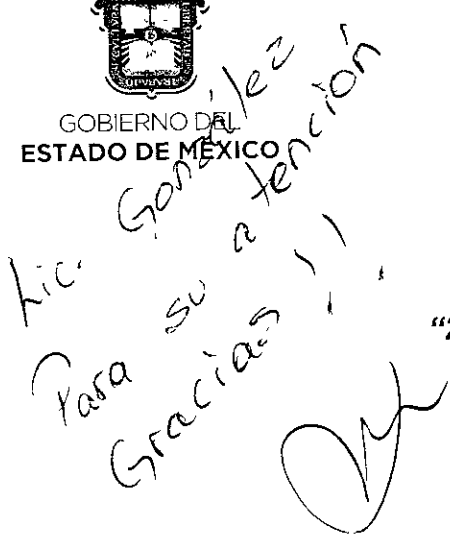 GOBIERNO DEL
ESTADO DE MÉXICO
Lic. González
Para su atención
Gracias !!
"2